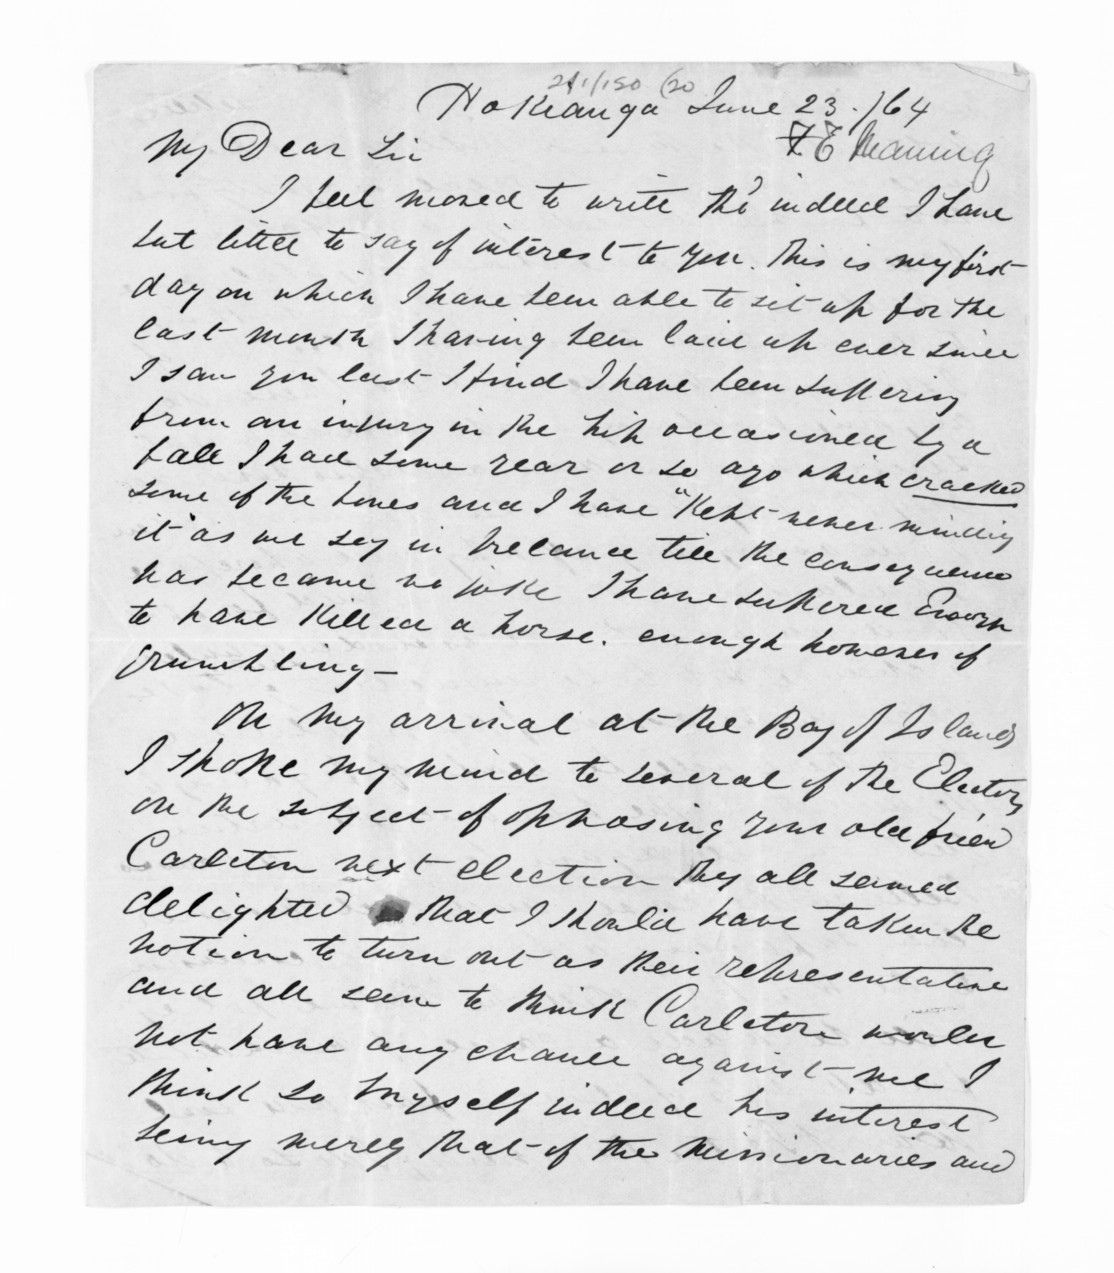 Hokianga June 23. /64
F E Maning
My Dear Sir
I feel moved to write tho' indeed I have
but little to say of interest to you. this is my first
day on which I have been able to sit up for the
last month I having been laid up ever since
I saw you last I find I have been suffering
from an injury in the hip occasioned by a
fall I had some year or so ago which cracked
some of the bones and I have "Kept never minding
it" as we say in Ireland till the consequence
has became no joke I have suffered Enough
to have Killed a horse. enough however of
grumbling —
On my arrival at the Bay of Islands
I spoke my mind to several of the Electors
on the subject of opposing your old friend
Carleton next election they all seemed
delighted that I should have taken the
notion to turn out as their representative
and all seem to think Carleton would
not have any chance against me I
think so myself indeed his interest
being merely that of the Missionaries and